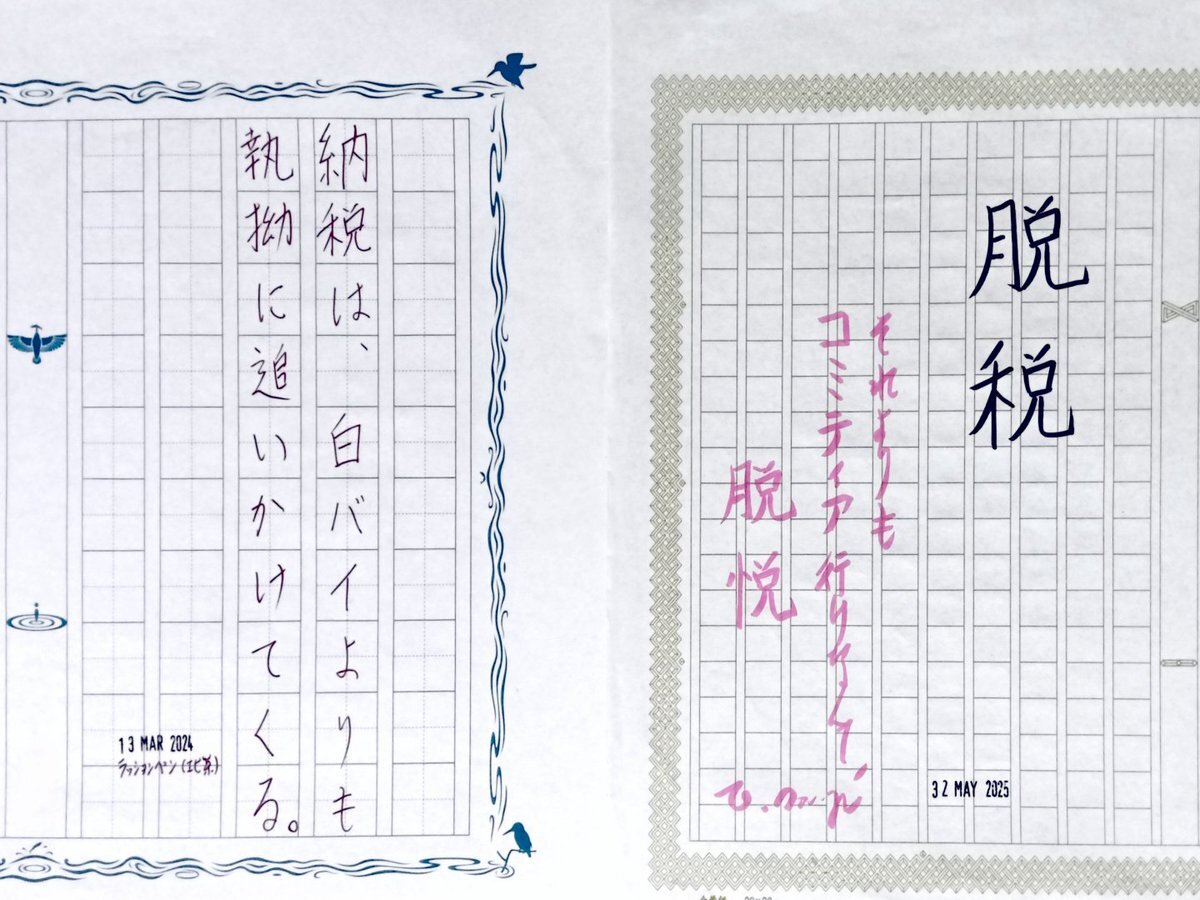 脱税
それよりも
コミティア
脱悦
32 MAY 2025
納税は、白バイよりも
執拗に追いかけてくる。
13 MAR 2024
ラッションペン(エビ茶)